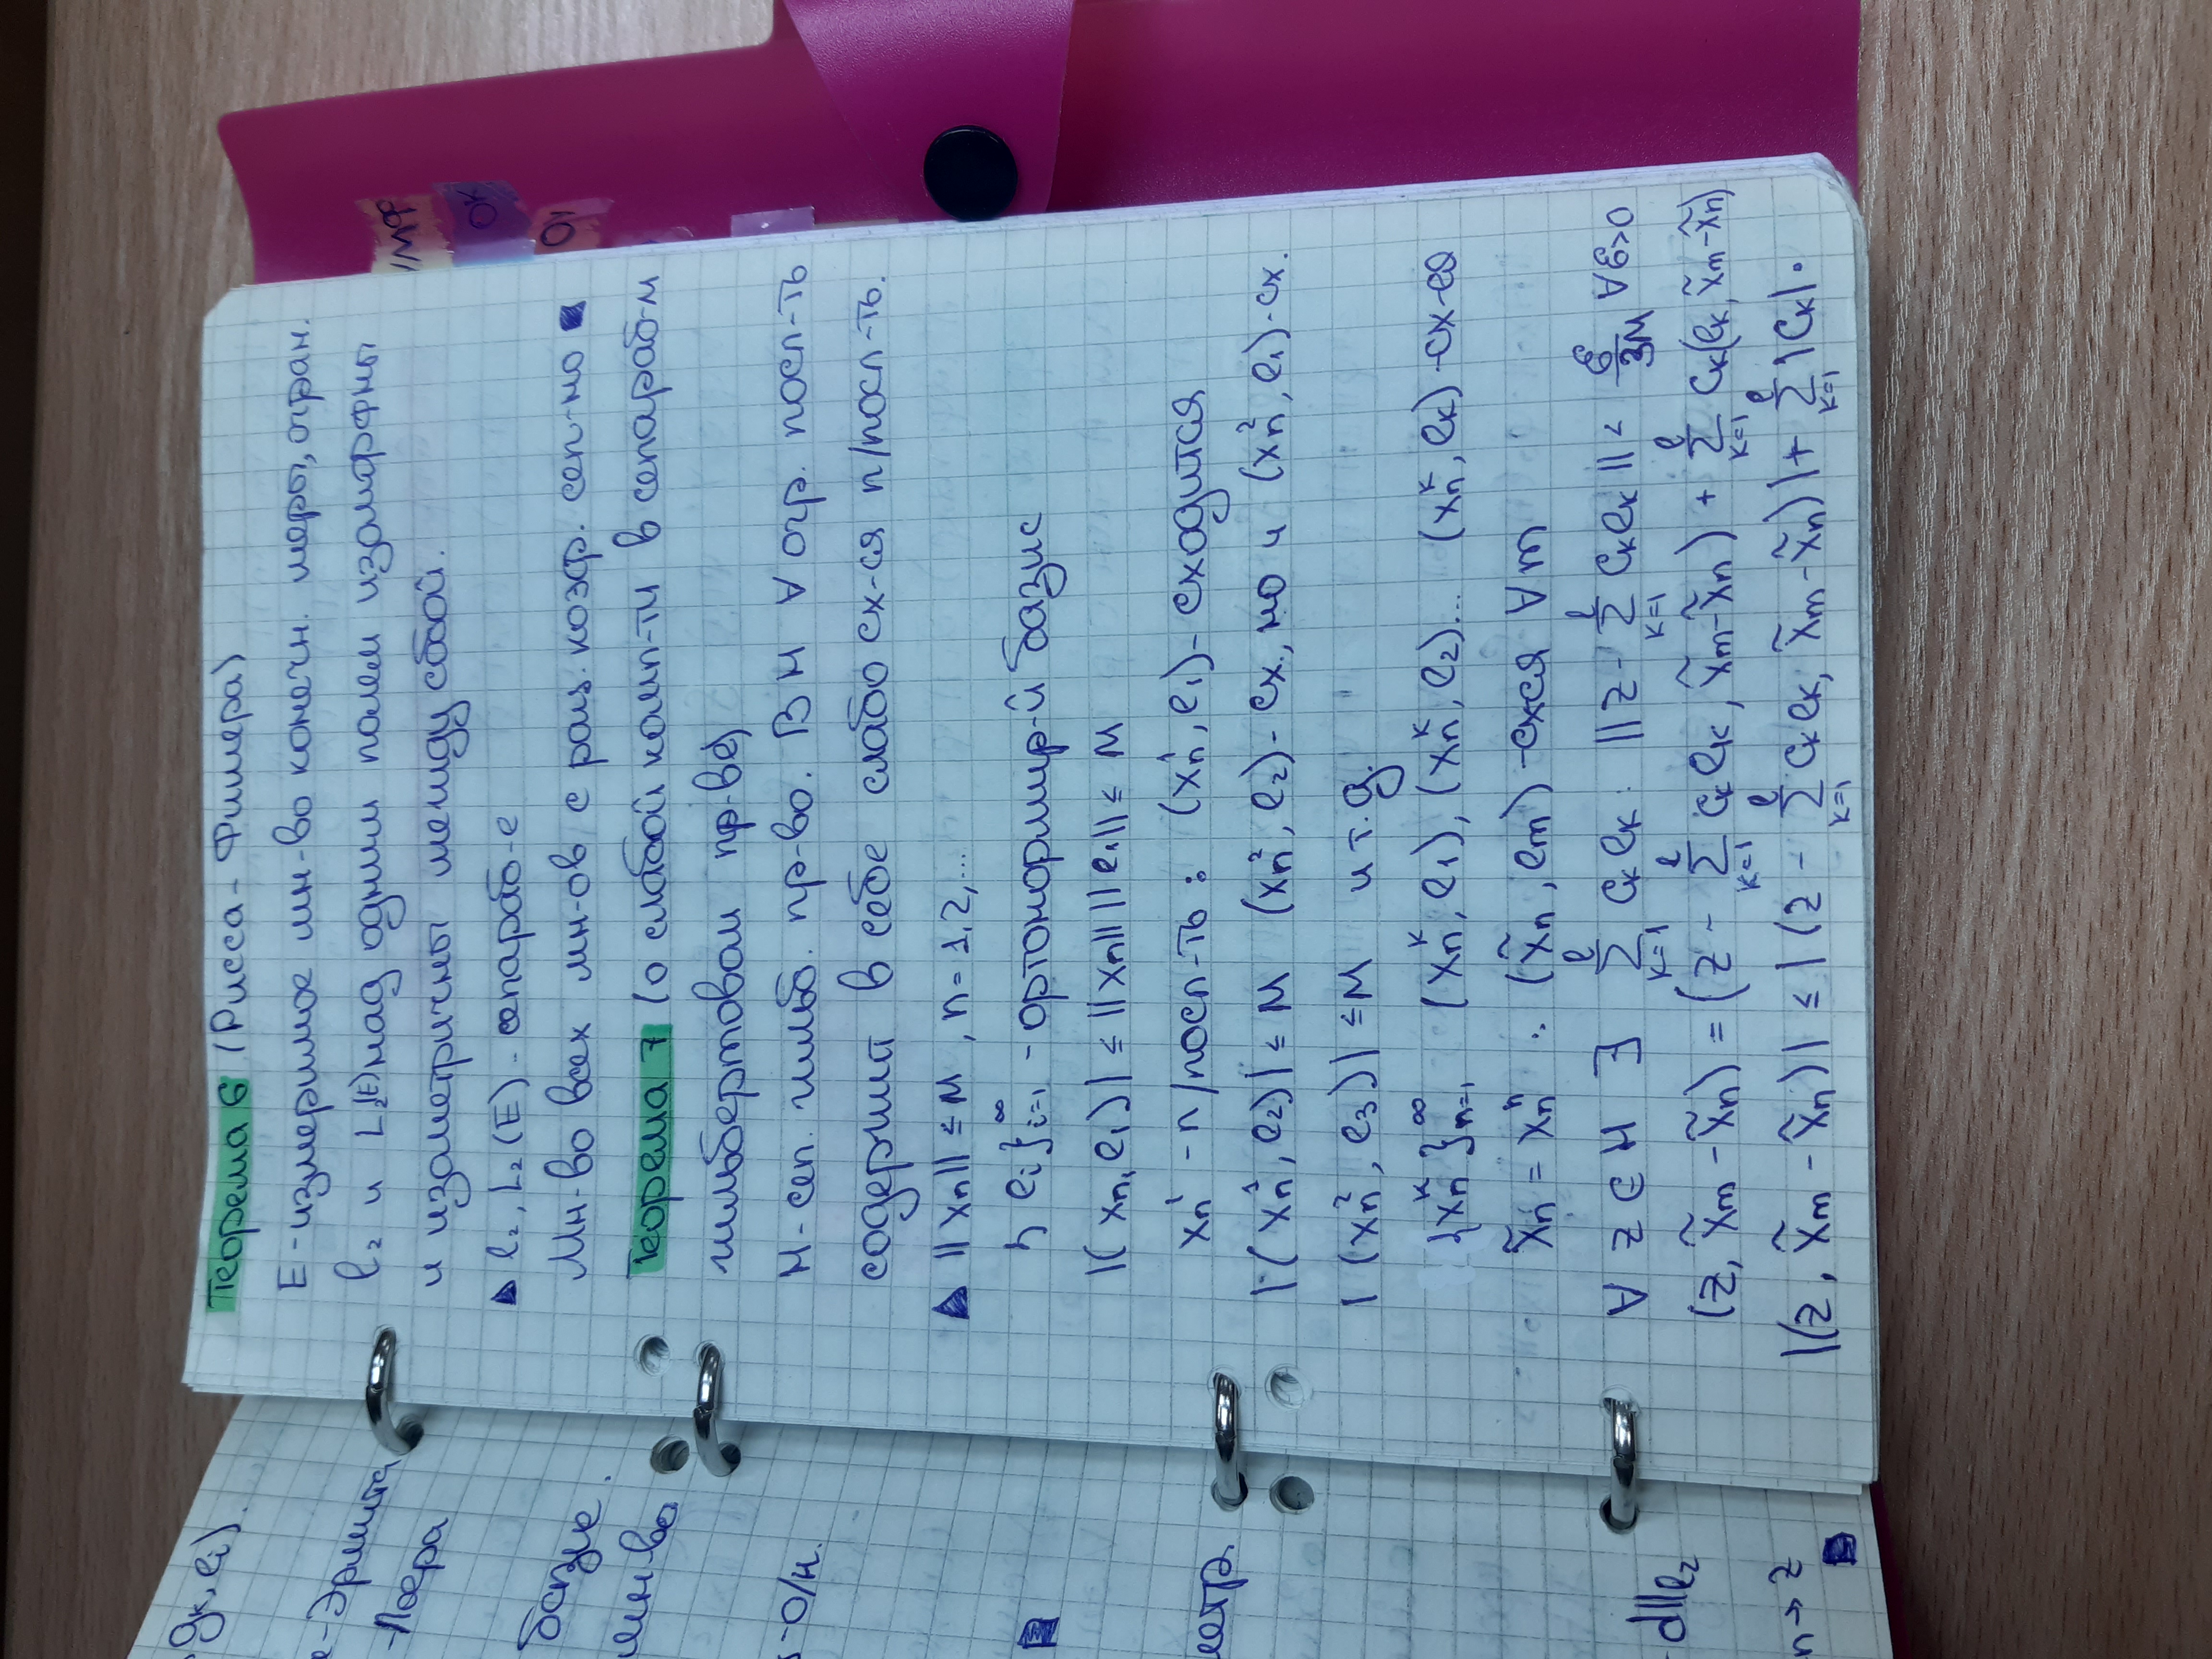 Теорема 6 (Рисса-Фишера)
E-измеримое мн-во конечн. меры, огран.
l₂ и L₂(E) над одним полем изоморфны
и изометричны между собой.
▲ l₂, L₂(E) - сепараб-е
Мн-во всех мн-ов с рац. коэф. сеп-но ■
Теорема 7 (о слабой комп-ти в сепараб-м
гильбертовом пр-ве)
H-сеп. гильб. пр-во. В H ∀ огр. посл-ть
содержит в себе слабо сх-ся п/посл-ть.
▲ ||xₙ|| ≤ M, n=1,2,...
{eᵢ}ᵢ₌₁^∞ - ортонормир-й базис
|(xₙ, e₁)| ≤ ||xₙ|| ||e₁|| ≤ M
xₙ¹ - п/посл-ть : (xₙ¹, e₁) - сходится
|(xₙ¹, e₂)| ≤ M (xₙ², e₂) - сх., но и (xₙ², e₁) - сх.
|(xₙ², e₃)| ≤ M и т.д.
{xₙᵏ}ₙ₌₁^∞ (xₙᵏ, e₁), (xₙᵏ, e₂)... (xₙᵏ, eₖ) - сх-ся
x̃ₙ = xₙⁿ : (x̃ₙ, eₘ) - сх-ся ∀m
∀ z ∈ H ∃ ∑ₖ₌₁^ℓ cₖeₖ : ||z - ∑ₖ₌₁^ℓ cₖeₖ|| < ε/3M ∀ε>0
(z, x̃ₘ - x̃ₙ) = (z - ∑ₖ₌₁^ℓ cₖeₖ, x̃ₘ - x̃ₙ) + ∑ₖ₌₁^ℓ cₖ(eₖ, x̃ₘ - x̃ₙ)
|(z, x̃ₘ - x̃ₙ)| ≤ |(z - ∑ₖ₌₁^ℓ cₖeₖ, x̃ₘ - x̃ₙ)| + ∑ₖ₌₁^ℓ |cₖ| ·
gₖ, eᵢ).
-Эрмита
базис.
мн-во
-о/н.
метр.
d||ℓ₂
n → z ■
ОК